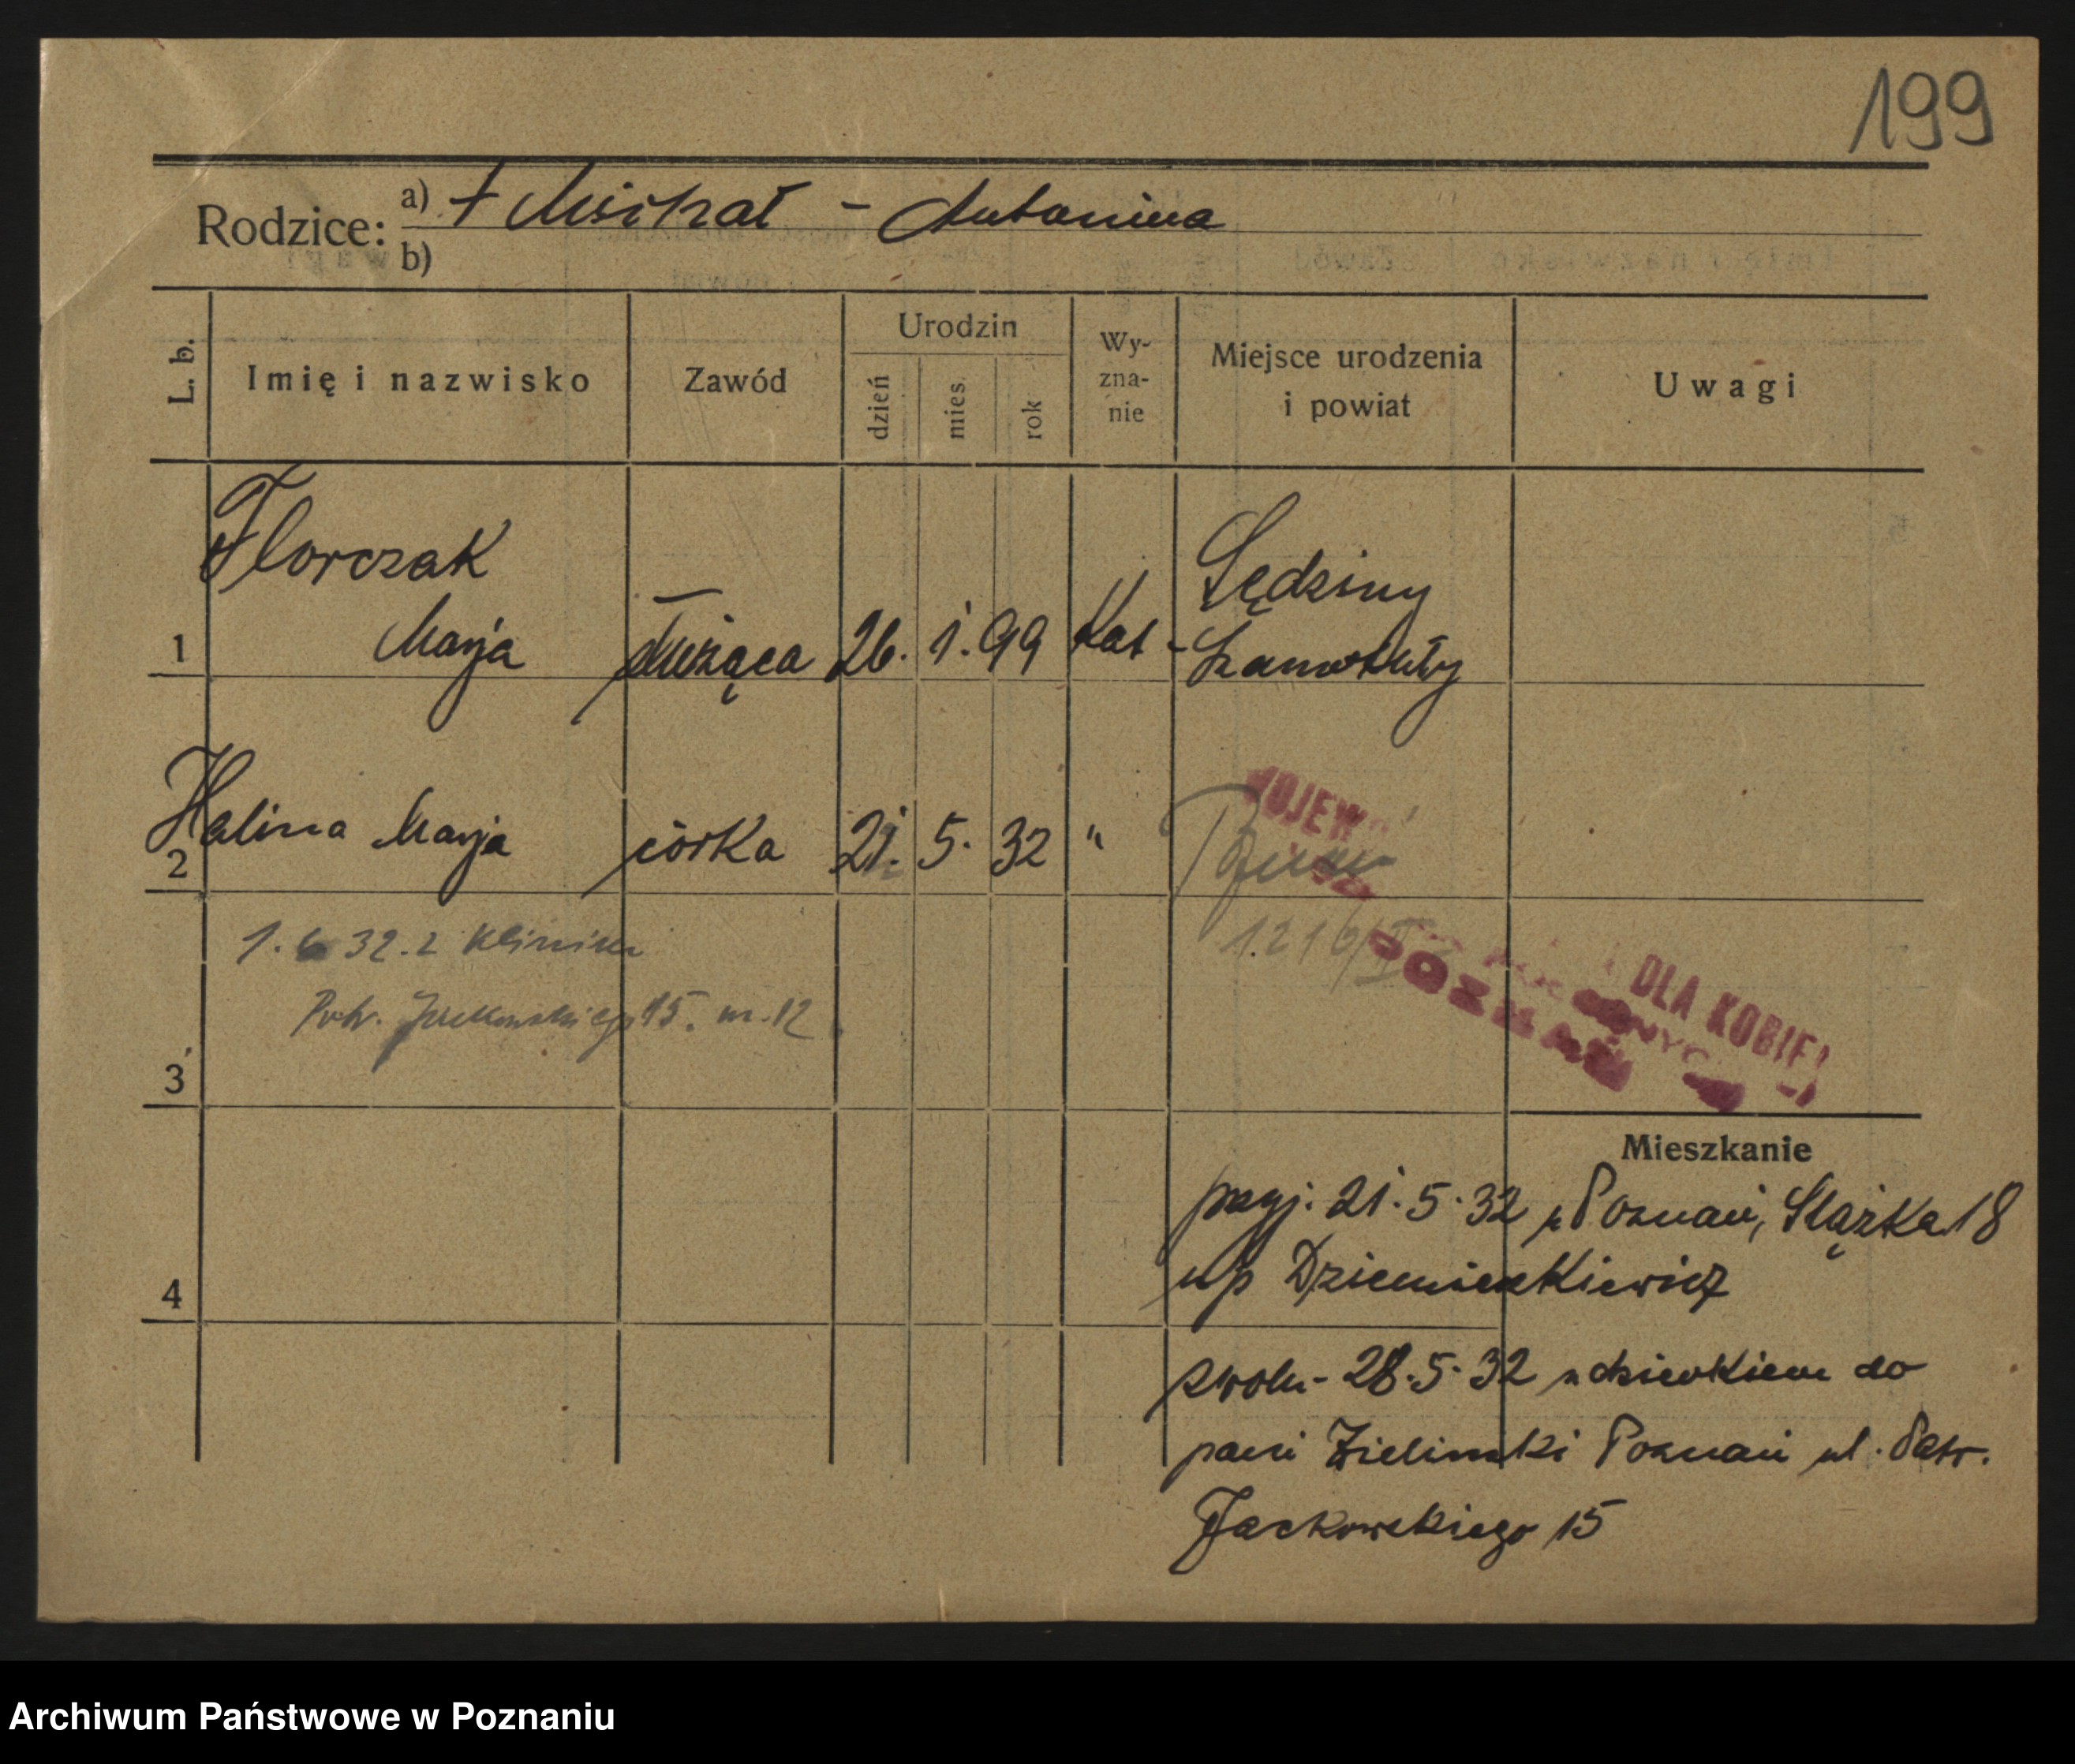 199
Rodzice: a) + Michał - Antonina
b)
L. b.
Imię i nazwisko
Zawód
Urodzin
dzień
mies.
rok
Wy-
zna-
nie
Miejsce urodzenia
i powiat
Uwagi
Florczak
Sędziny
1 Marja służąca 26. 1. 99 Kat - Szamotuły
2 Halina Marja córka 21. 5. 32 "
WOJEW
1. 6 32. z Kliniki
1.216/II
Jackowskiego 15. m. 12
DLA KOBIE
POZNAŃ
3
Mieszkanie
przyj. 21. 5. 32 z Poznań, Ślązka 18
4 u/p Dziemienkiewicz
zwoln - 28. 5. 32 z dzieckiem do
pani Zielinski Poznań ul. Patr.
Jackowskiego 15
Archiwum Państwowe w Poznaniu